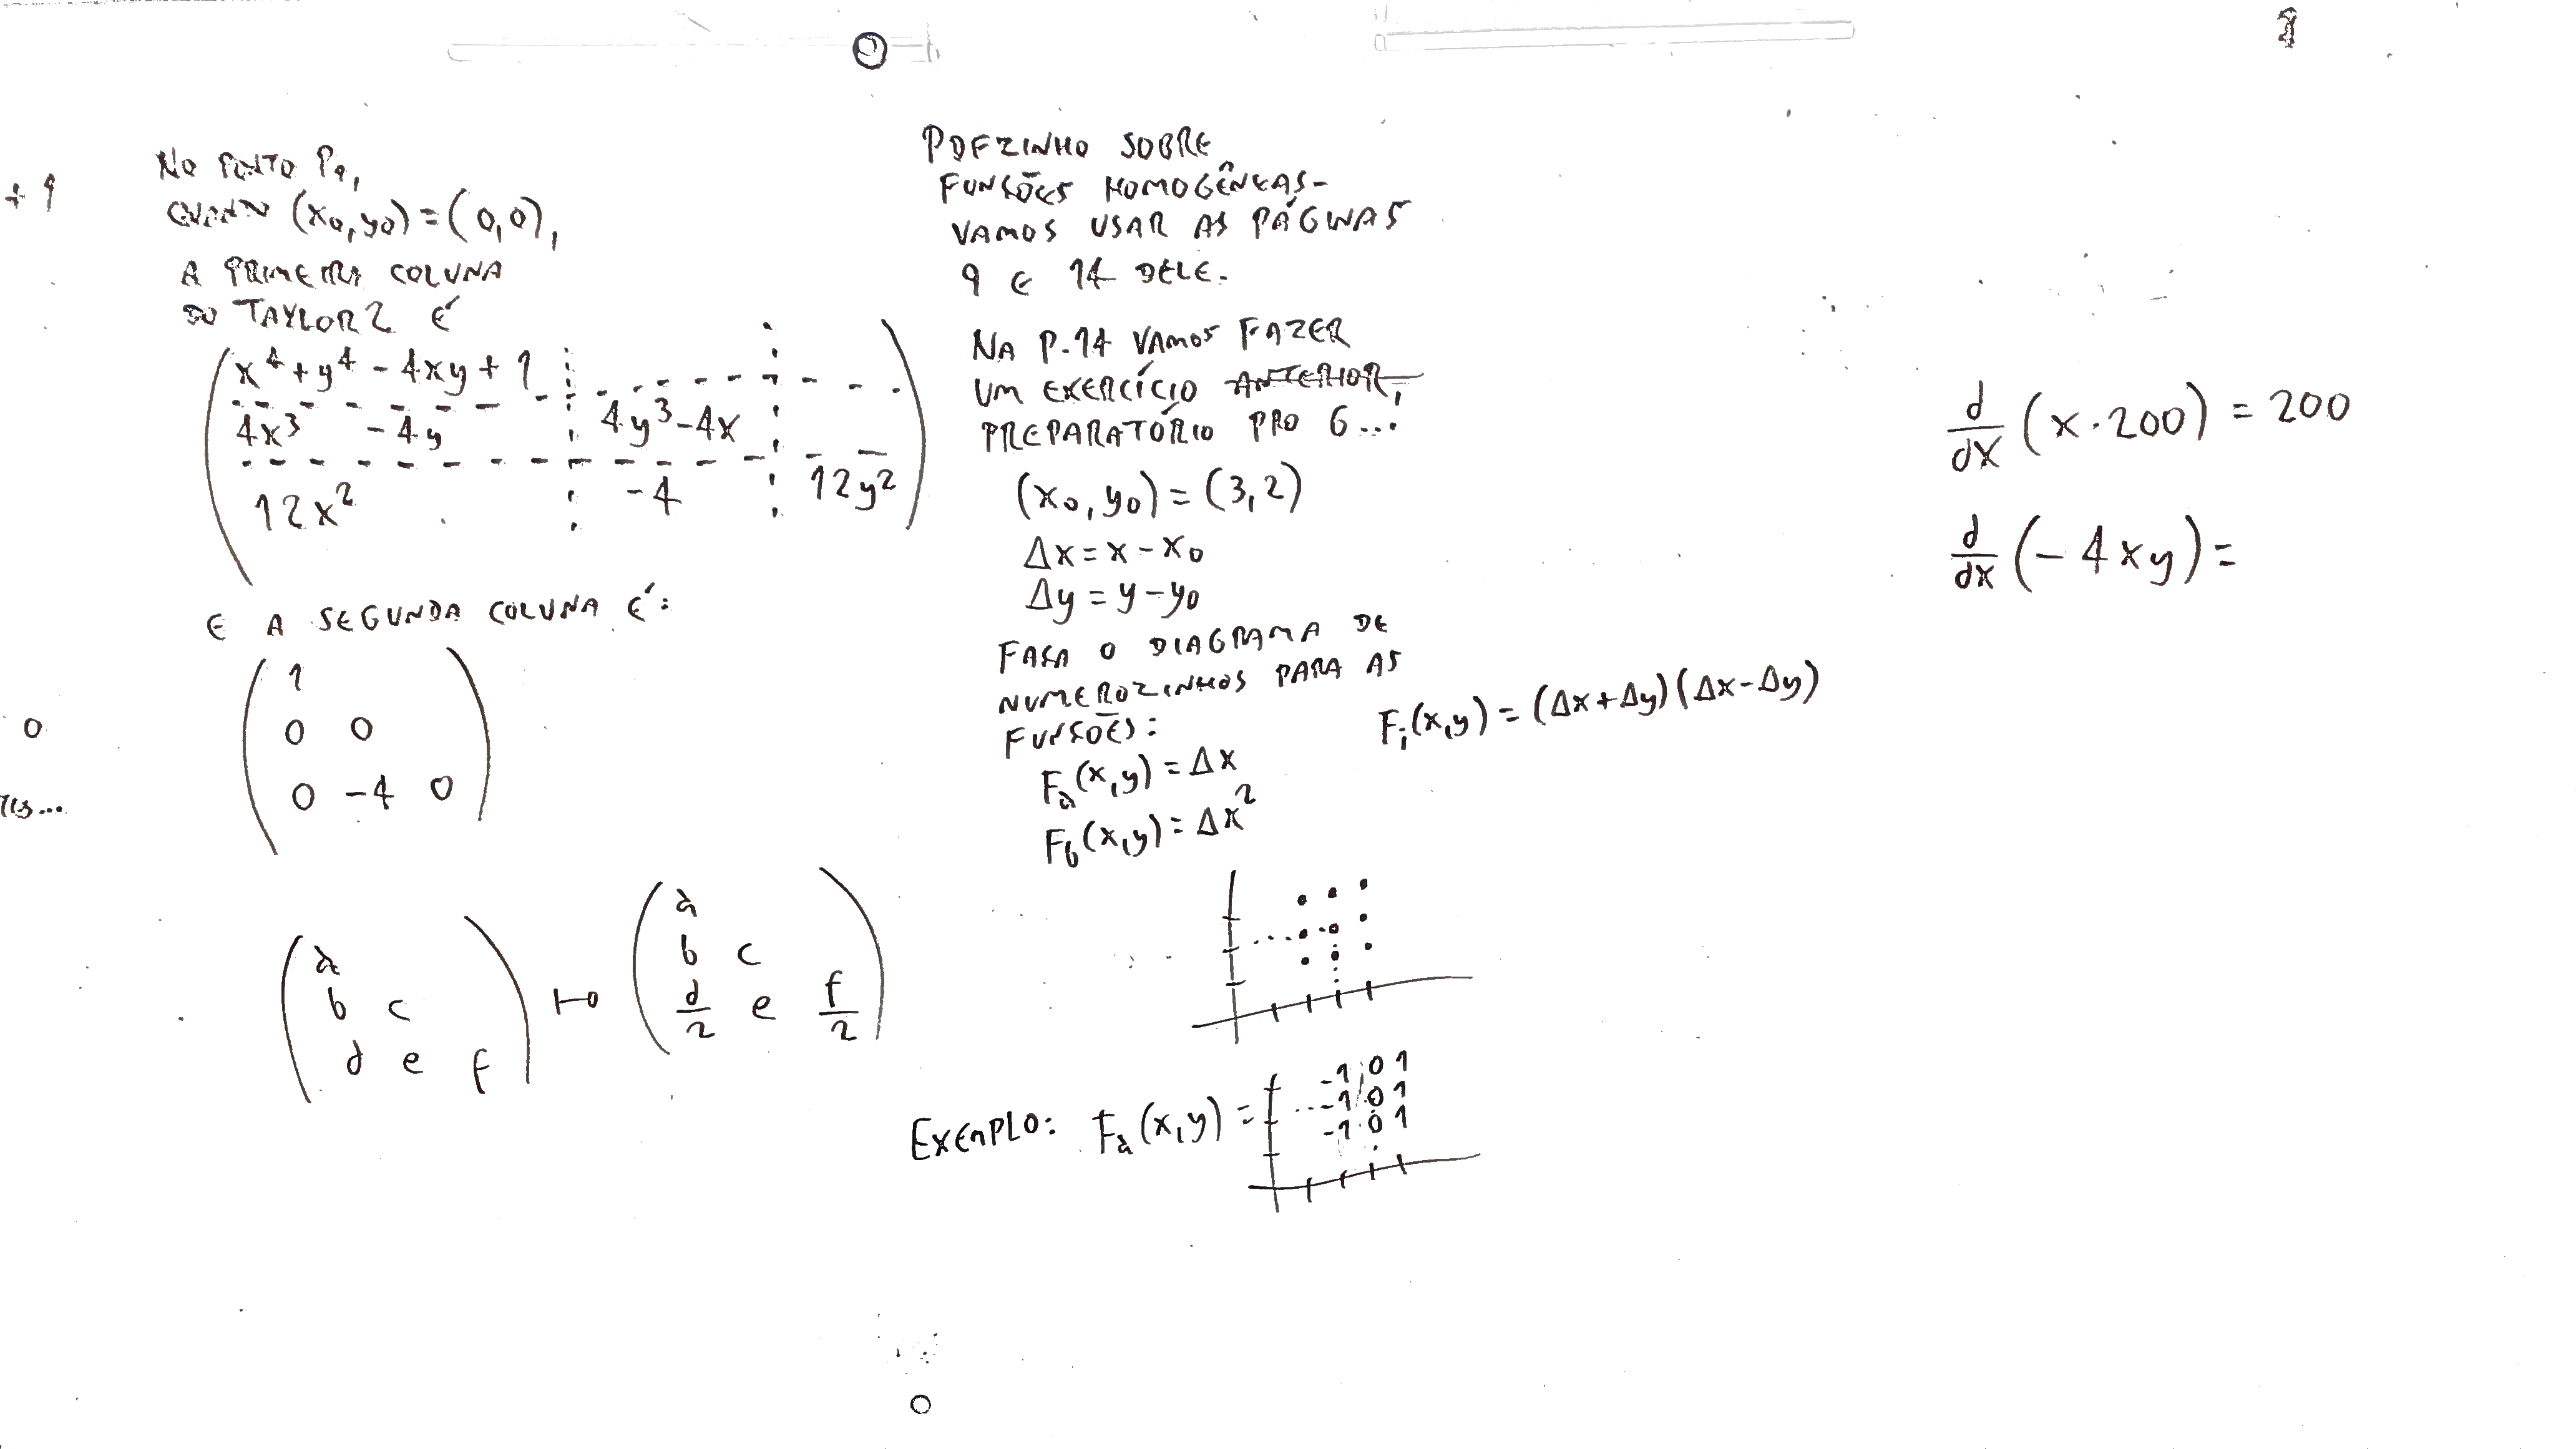 + 1
0
NO PONTO P9,
QUANDO (x0,y0)=(0,0),
A PRIMEIRA COLUNA
DO TAYLOR2 É
x⁴+y⁴-4xy+1
4x³ -4y 4y³-4x
12x² -4 12y²
E A SEGUNDA COLUNA É:
1
0 0
0 -4 0
a
b c
d e f
↦
a
b c
d/2 e f/2
PDFZINHO SOBRE
FUNÇÕES HOMOGÊNEAS-
VAMOS USAR AS PÁGINAS
9 E 14 DELE.
NA P.14 VAMOS FAZER
UM EXERCÍCIO ANTERIOR,
PREPARATÓRIO PRO 6...
(x0,y0)=(3,2)
Δx=x-x0
Δy=y-y0
FAÇA O DIAGRAMA DE
NUMEROZINHOS PARA AS
FUNÇÕES:
Fa(x,y)=Δx
Fb(x,y)=Δx²
Fi(x,y)=(Δx+Δy)(Δx-Δy)
EXEMPLO: Fa(x,y)=
-1 0 1
-1 0 1
-1 0 1
d/dx (x·200)=200
d/dx (-4xy)=